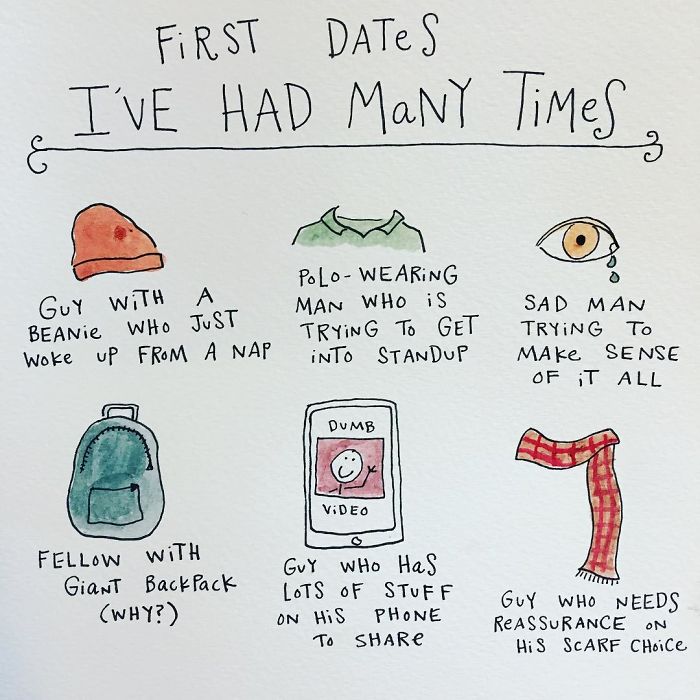 FiRST DATeS
I'VE HAD MaNY TiMeS
GuY WiTH A
BEANie WHO JuST
WoKe UP FRoM A NAP
PoLo-WEARiNG
MAN WHO iS
TRYiNG To GET
iNTo STANDUP
SAD MAN
TRYiNG To
MAKe SENSE
OF iT ALL
FELLoW WiTH
GiaNT BackPack
(WHY?)
DuMB
ViDEo
GuY WHO HaS
LoTS OF STuFF
ON HiS PHoNE
To SHARe
GuY WHO NEEDS
ReASSURANCE oN
HiS ScARF CHoicE